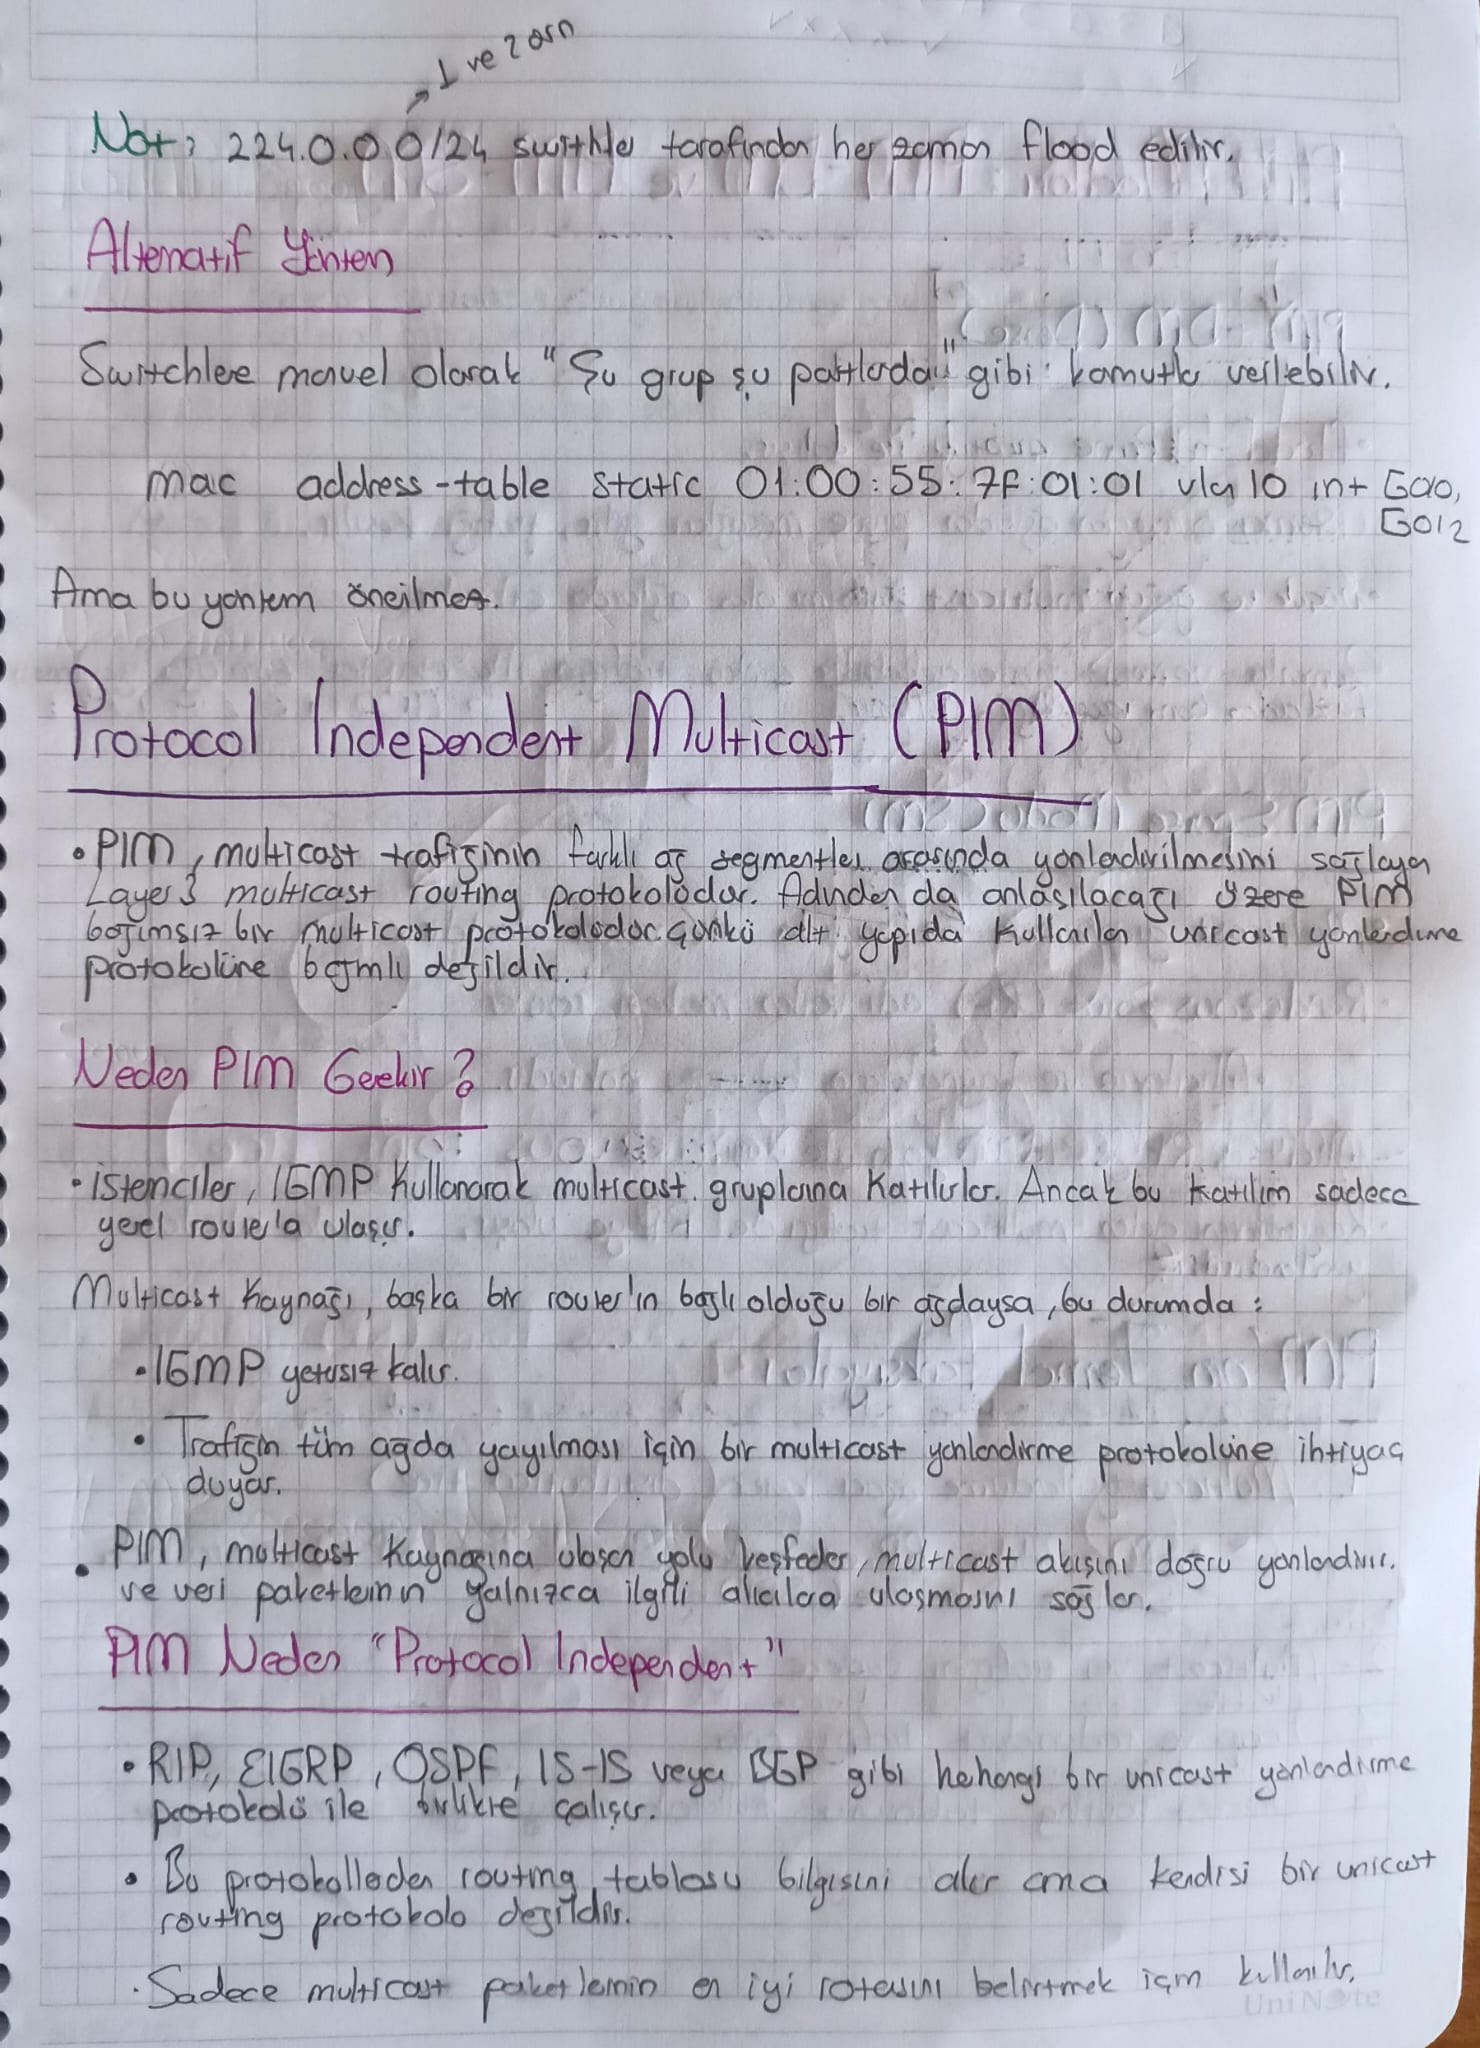 → 1 ve 2 arsn
Not: 224.0.0 0/24 swithler tarafından her zaman flood edilir.
Alternatif Yöntem
Switchlere manuel olarak "Şu grup şu portlarda" gibi komutlar verilebilir.
mac address-table static 01:00:55:7F:01:01 vlan 10 int G0/0,
G0/2
Ama bu yöntem önerilmez.
Protocol Independent Multicast (PIM)
• PIM, multicast trafiğinin farklı ağ segmentler arasında yönlendirilmesini sağlayan
Layer 3 multicast routing protokolüdür. Adından da anlaşılacağı üzere PIM
bağımsız bir multicast protokolüdür. Çünkü alt yapıda kullanılan unicast yönlendirme
protokolüne bağımlı değildir.
Neden PIM Gerekir?
• istemciler, IGMP kullanarak multicast gruplarına katılırlar. Ancak bu katılım sadece
yerel router'a ulaşır.
Multicast kaynağı, başka bir router'ın bağlı olduğu bir ağdaysa, bu durumda :
• IGMP yetersiz kalır.
• Trafiğin tüm ağda yayılması için bir multicast yönlendirme protokolüne ihtiyaç
duyar.
• PIM, multicast kaynağına ulaşan yolu keşfeder, multicast akışını doğru yönlendirir.
ve veri paketlerinin yalnızca ilgili alıcılara ulaşmasını sağlar.
PIM Neden "Protocol Independent"
• RIP, EIGRP, OSPF, IS-IS veya BGP gibi herhangi bir unicast yönlendirme
protokolü ile birlikte çalışır.
• Bu protokollerden routing tablosu bilgisini alır ama kendisi bir unicast
routing protokolü değildir.
• Sadece multicast paketlerinin en iyi rotasını belirtmek için kullanılır.
UniNote